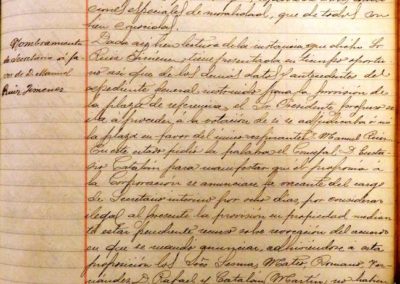 ciones especiales de moralidad, que de todos son
bien conocidas.
Nombramiento
de Secretario a fa-
vor de D. Manuel
Ruiz Jimenez
Dada asi bien lectura de la instancia que dicho Sr.
Ruiz Jimenez tiene presentada en tiempo oportu-
no asi que de los demas datos y antecedentes del
expediente general instruido para la provision de
la plaza de referencia, el Sr. Presidente propuso se
iba a proceder a la votacion de si se adjudicaba ó no
la plaza en favor del unico aspirante D. Manuel Ruiz.
En este estado pidió la palabra el Concejal D.
Catalán para manifestar que el proponia a
la Corporacion se anunciase la vacante del cargo
de Secretario interino por ocho dias por considerar
ilegal al presente la provision en propiedad median
te estar pendiente recurso sobre revocacion del acuerdo
en que se mandó anunciar, adhiriendose a esta
proposicion los Sres. Mateo, Romano, Fer-
nández D. Rafael y Catalán Martin, no habien